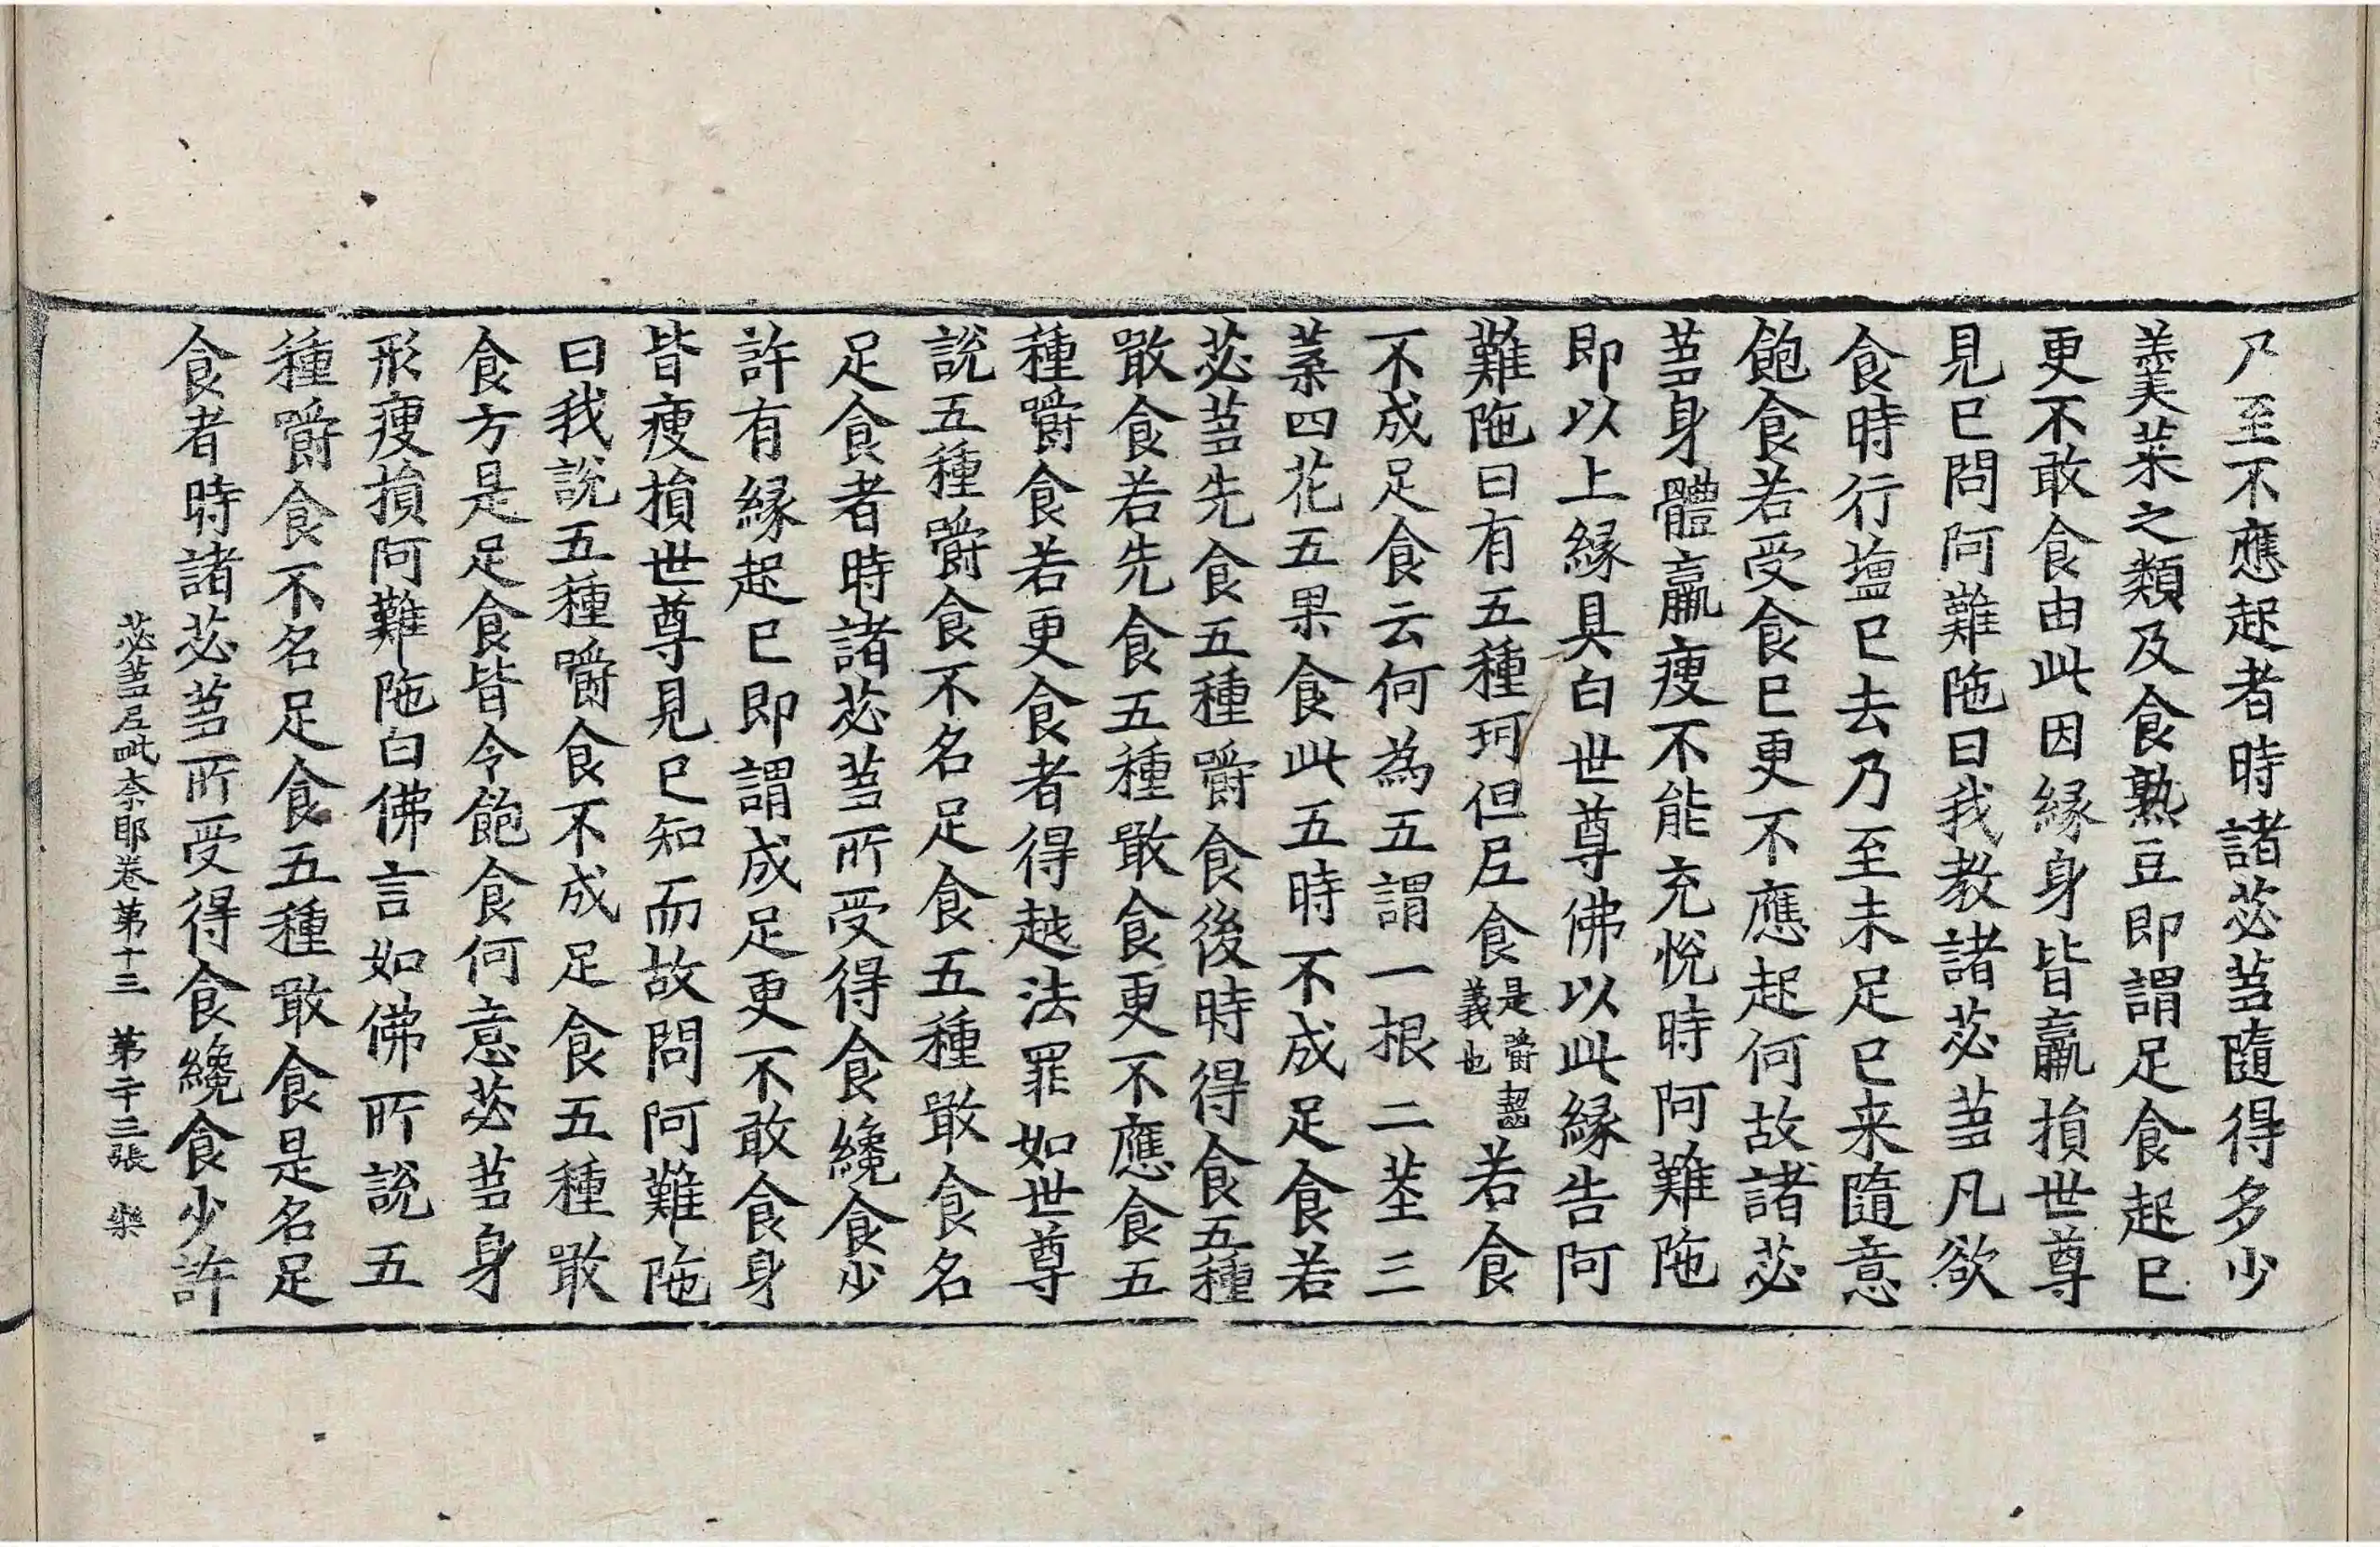 乃至不應起者時諸苾蒭隨得多少
羹菜之類及食熟豆即謂足食起已
更不敢食由此因緣身皆羸損世尊
見已問阿難陁曰我教諸苾蒭凡欲
食時行塩已去乃至未足已来隨意
飽食若受食已更不應起何故諸苾
蒭身體羸瘦不能充悅時阿難陁
即以上緣具白世尊佛以此緣告阿
難陁曰有五種珂但尼食是嚼齧義也若食
不成足食云何為五謂一根二莖三
葉四花五果食此五時不成足食若
苾蒭先食五種嚼食後時得食五種
噉食若先食五種噉食更不應食五
種嚼食若更食者得越法罪如世尊
說五種嚼食不名足食五種噉食名
足食者時諸苾蒭所受得食纔食少
許有緣起已即謂成足更不敢食身
皆瘦損世尊見已知而故問阿難陁
曰我說五種嚼食不成足食五種噉
食方是足食皆令飽食何意苾蒭身
形瘦損阿難陁白佛言如佛所說五
種嚼食不名足食五種噉食是名足
食者時諸苾蒭所受得食纔食少許
苾蒭尼毗奈耶卷第十三 第二十三張 樂